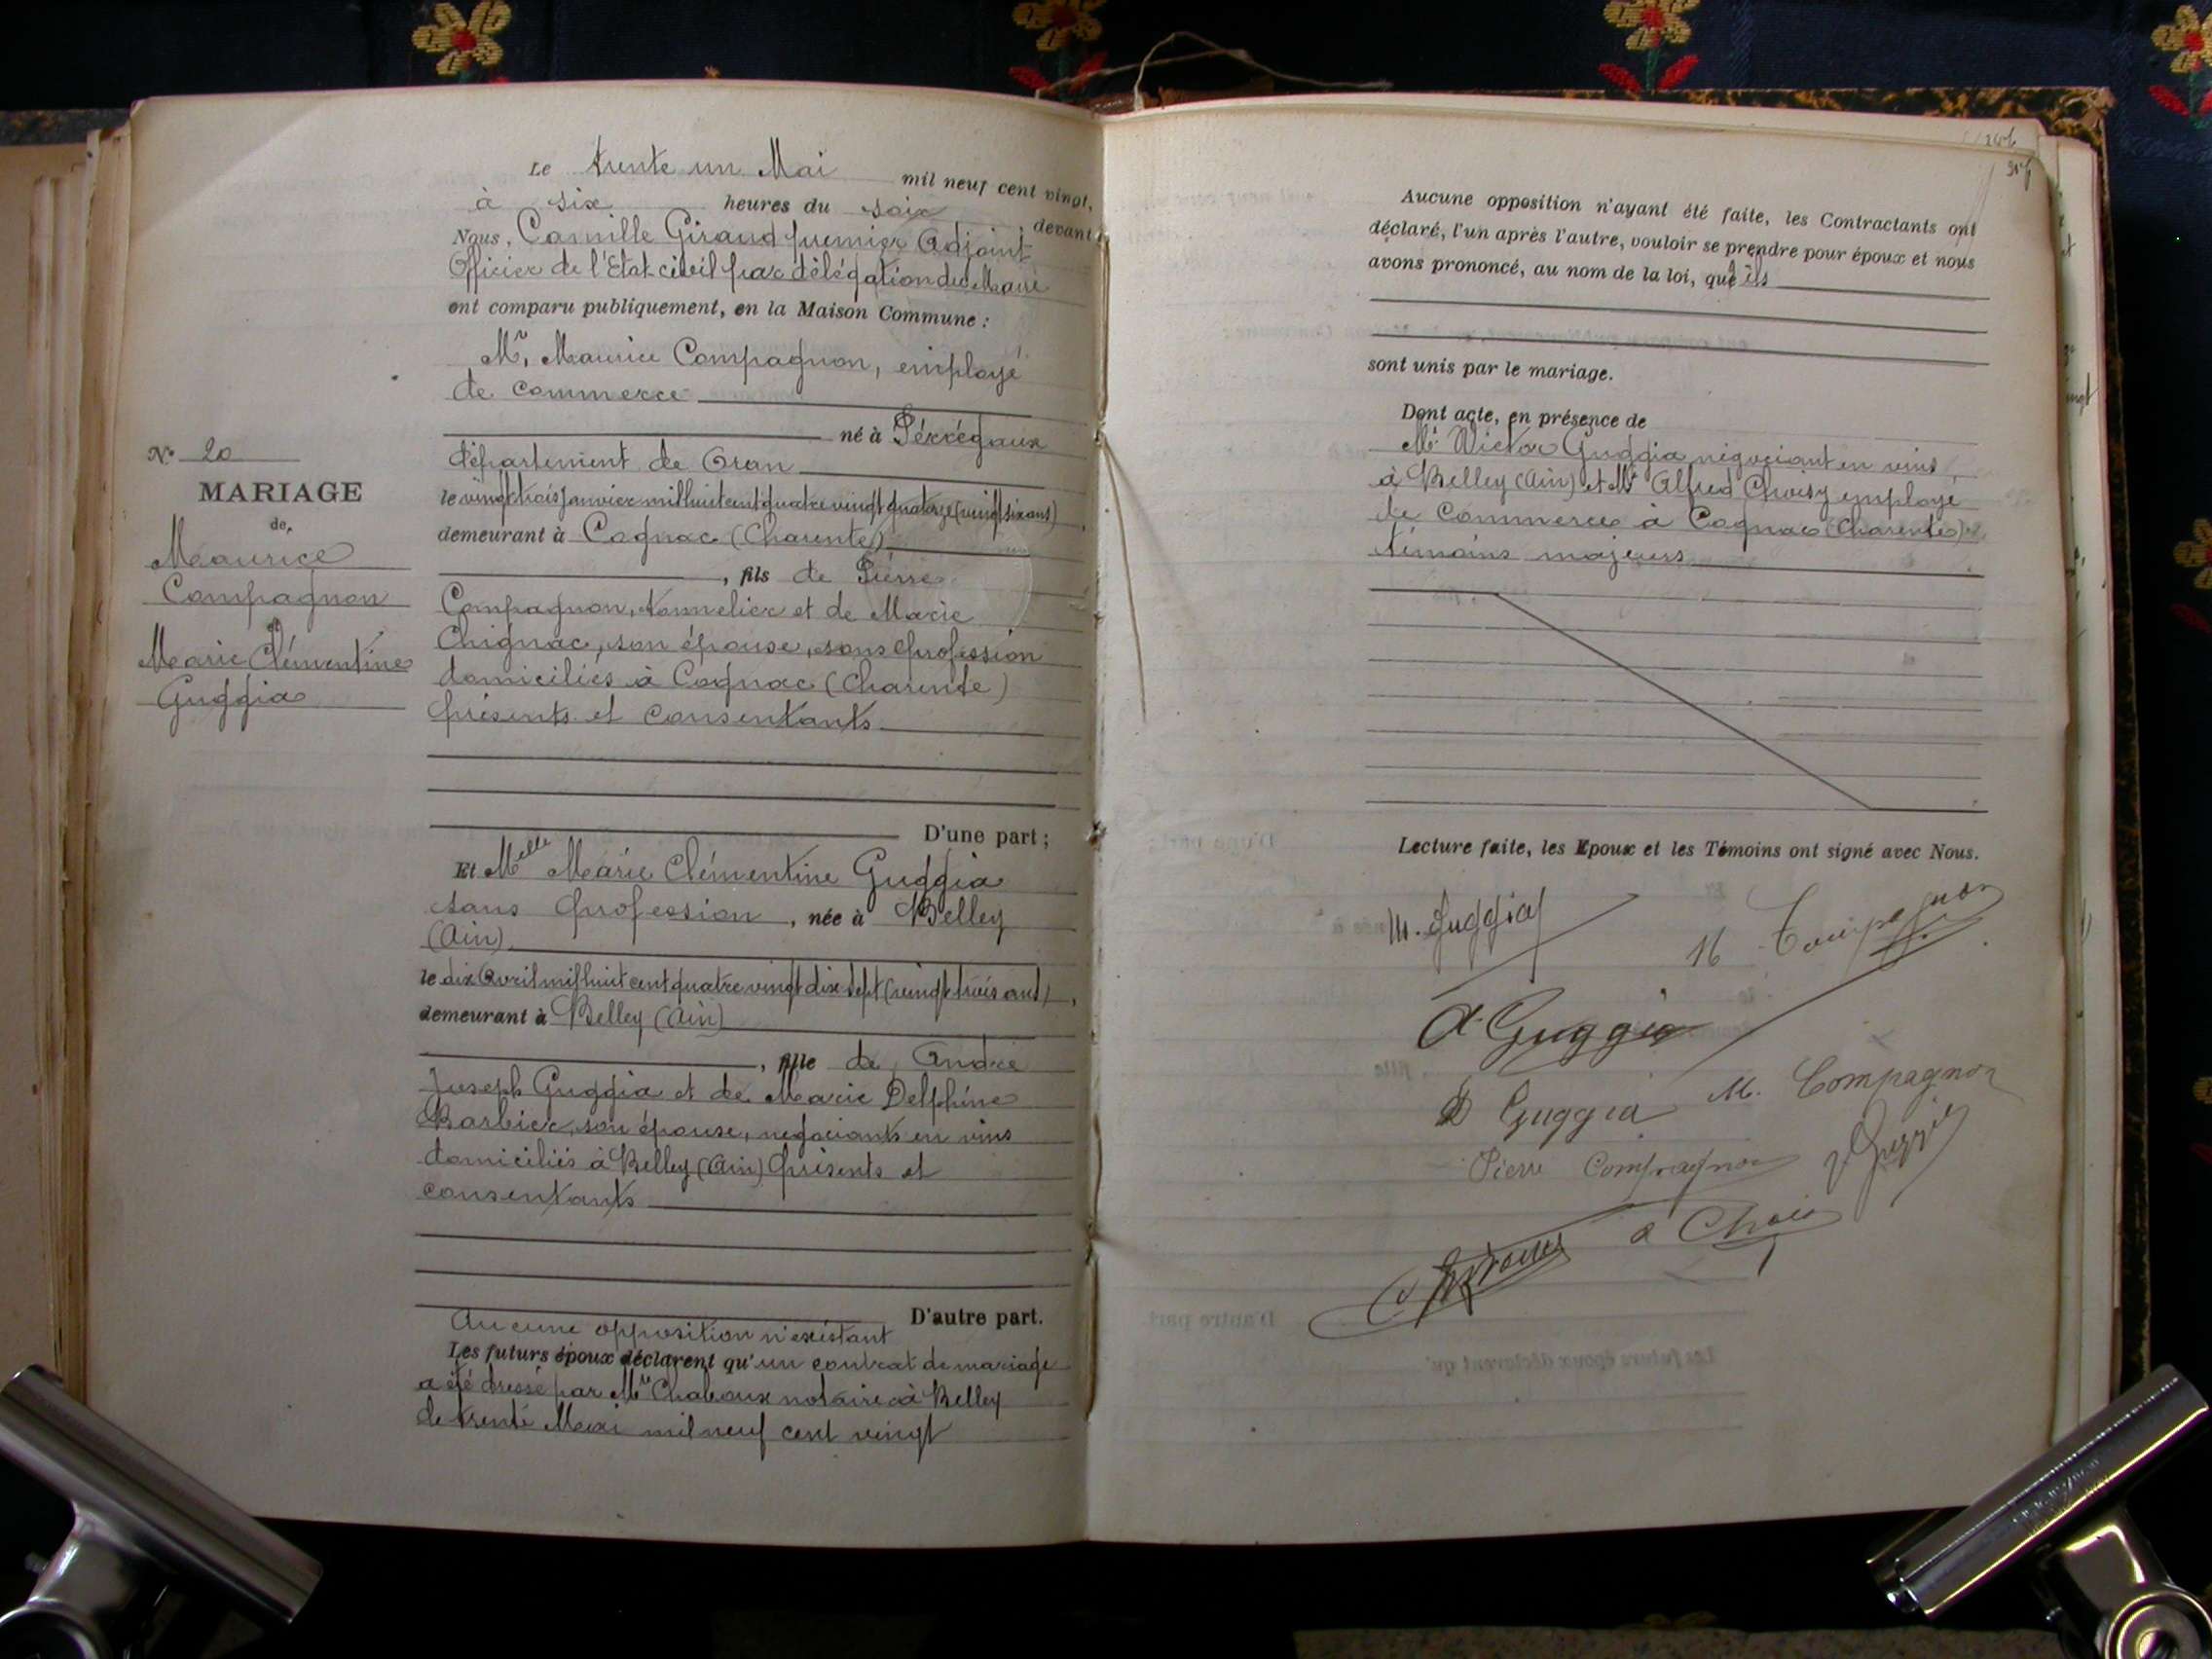 Le trente un Mai mil neuf cent vingt,
à six heures du soir, devant
Nous, Camille Giraud premier Adjoint
Officier de l'Etat civil par délégation du Maire
ont comparu publiquement, en la Maison Commune :
Mr, Maurice Compagnon, employé
de commerce
né à Pérrégaux
département de Oran
le vingt trois Janvier mil huit cent quatre vingt quatorze (vingt six ans),
demeurant à Cognac (Charente)
, fils de Pierre
Compagnon, tonnelier et de Marie
Chignac, son épouse, sans profession
domiciliés à Cognac (Charente)
présents et consentants
D'une part ;
Et Melle Marie Clémentine Guggia
sans profession, née à Belley
(Ain)
le dix Avril mil huit cent quatre vingt dix sept (vingt trois ans),
demeurant à Belley (Ain)
, fille de André
Joseph Guggia et de Marie Delphine
Barbier, son épouse, negociants en vins
domiciliés à Belley (Ain) présents et
consentants
D'autre part.
Aucune opposition n'existant
Les futurs époux déclarent qu'un contrat de mariage
a été dressé par Me Chaboux notaire à Belley
le trente Mai mil neuf cent vingt
No 20
MARIAGE
de
Maurice
Compagnon
et
Marie Clémentine
Guggia
Aucune opposition n'ayant été faite, les Contractants ont
déclaré, l'un après l'autre, vouloir se prendre pour époux et nous
avons prononcé, au nom de la loi, qu'ils
sont unis par le mariage.
Dont acte, en présence de
Mr Victor Guggia négociant en vins
à Belley (Ain) et Mr Alfred Choisy employé
de Commerce à Cognac (Charente)
témoins majeurs
Lecture faite, les Epoux et les Témoins ont signé avec Nous.
M. Guggia
M Compagnon
A Guggia
D Guggia M. Compagnon
Pierre Compagnon V Guggia
a Choisy